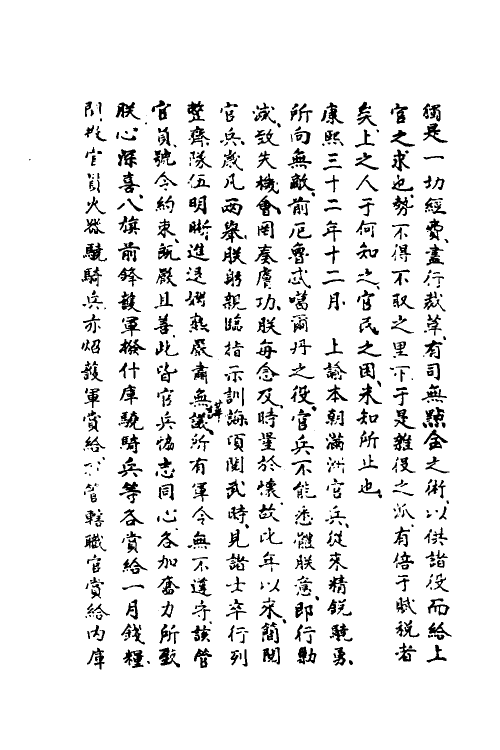 獨是一切經費盡行裁革有司無點金之術以供諸役而給上
官之求也勢不得不取之里下于是雜役之派有倍于賦稅者
矣上之人于何知之官民之困未知所止也
康熙三十二年十二月　上諭本朝滿洲官兵從來精銳驍勇
所向無敵前厄魯忒噶爾丹之役官兵不能悉體朕意即行勦
滅致失機會罔奏膚功朕每念及時厪於懷故比年以來簡閱
官兵歲凡兩舉朕躬親臨指示訓誨頃閱武時見諸士卒行列
整齊隊伍明晰進退嫻熟嚴肅無譁所有軍令無不遵守該管
官員號令約束既嚴且善此皆官兵協志同心各加奮力所致
朕心深喜八旗前鋒護軍撥什庫驍騎兵等各賞給一月錢糧
別撥官員火器驍騎兵亦炤護軍賞給管轄職官賞給內庫